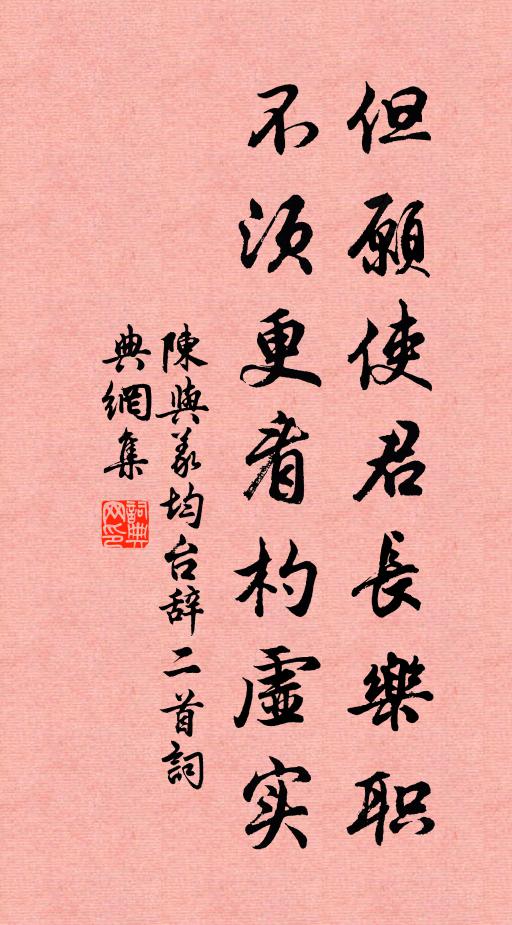 但願使君長樂职
不须更看杓虛实
陳與義均台辞二首詞
典網集
詞典
网印